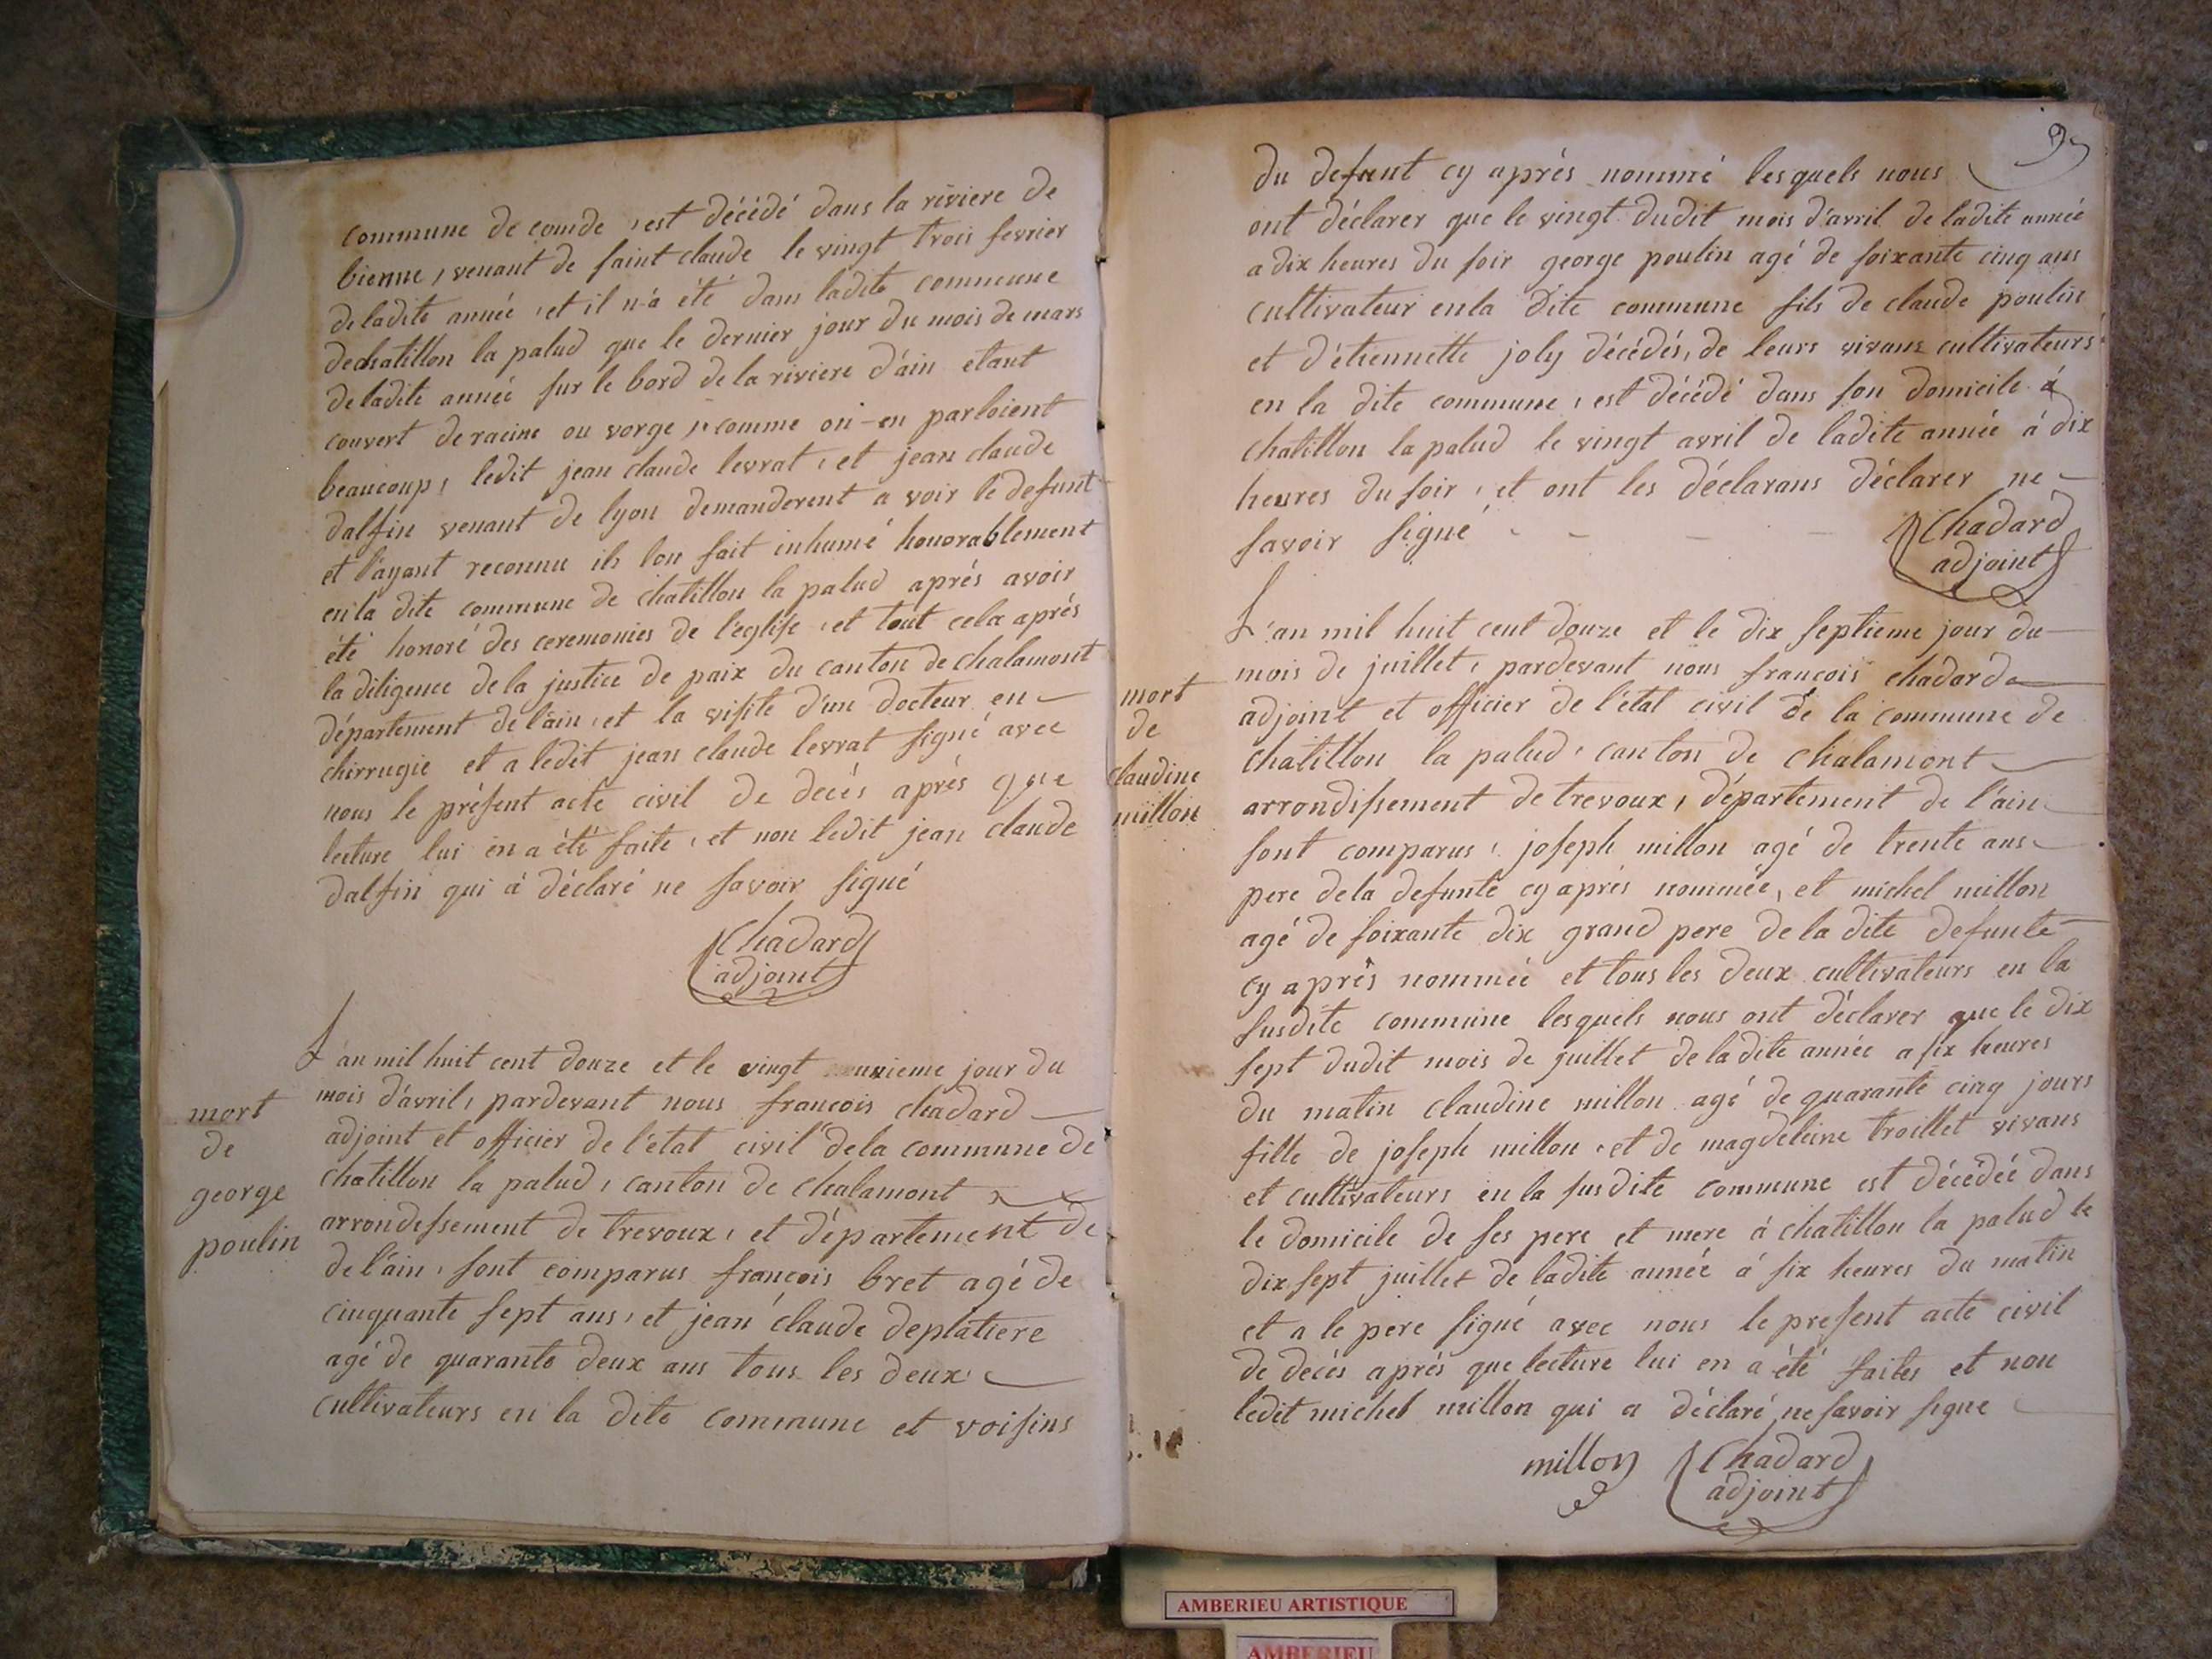 commune de conde, est décédé dans la riviere de
bienne, venant de saint claude le vingt trois fevrier
de ladite année, et il n'a été dans ladite commune
de chatillon la palud que le dernier jour du mois de mars
de ladite année sur le bord de la riviere d'ain etant
couvert de racine ou vorge, comme on en parloient
beaucoup, ledit jean claude levrat, et jean claude
dalfin venant de lyon demanderent a voir le defunt
et l'ayant reconnu ils lon fait inhumé honorablement
en la dite commune de chatillon la palud aprés avoir
été honoré des ceremonies de l'église, et tout cela aprés
la diligence de la justice de paix du canton de chalamont
département de l'ain, et la visite d'un docteur en
chirrugie et a ledit jean claude levrat signé avec
nous le présent acte civil de decés aprés que
lecture lui en a été faite, et non ledit jean claude
dalfin qui à déclaré ne savoir signé
Chadard
adjoint
mort
de
george
poulin
L'an mil huit cent douze et le vingt unieme jour du
mois d'avril, pardevant nous francois chadard
adjoint et officier de l'état civil de la commune de
chatillon la palud, canton de chalamont
arrondissement de trevoux, et département de
de l'ain, sont comparus françois bret agé de
cinquante sept ans, et jean claude deplatiere
agé de quarante deux ans tous les deux
cultivateurs en la dite commune et voisins
du defunt cy aprés nommé lesquels nous
ont déclarer que le vingt dudit mois d'avril de ladite année
a dix heures du soir george poulin agé de soixante cinq ans
cultivateur en la dite commune fils de claude poulin
et d'étiennette joly décédés, de leurs vivans cultivateurs
en la dite commune, est décédé dans son domicile à
chatillon la palud le vingt avril de ladite année à dix
heures du soir, et ont les déclarans déclarer ne
savoir signé
Chadard
adjoint
mort
de
claudine
millon
L'an mil huit cent douze et le dix septieme jour du
mois de juillet, pardevant nous francois chadard
adjoint et officier de l'état civil de la commune de
chatillon la palud, canton de chalamont
arrondissement de trevoux, département de l'ain
sont comparus, joseph millon agé de trente ans
pere de la defunte cy aprés nommée, et michel millon
agé de soixante dix grand pere de la dite defunte
cy aprés nommée et tous les deux cultivateurs en la
susdite commune lesquels nous ont déclarer que le dix
sept dudit mois de juillet de ladite année a six heures
du matin claudine millon agé de quarante cinq jours
fille de joseph millon, et de magdeleine troillet vivans
et cultivateurs en la susdite commune est décédée dans
le domicile de ses pere et mere à chatillon la palud le
dix sept juillet de ladite année à six heures du matin
et a le pere signé avec nous le present acte civil
de decés aprés que lecture lui en a été faites et non
ledit michel millon qui a déclaré ne savoir signe
millon
Chadard
adjoint
AMBERIEU ARTISTIQUE
AMBERIEU